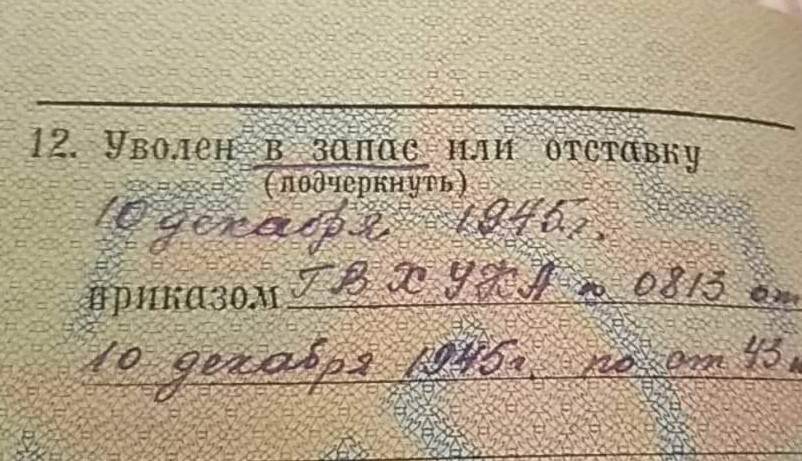 12. Уволен в запас или отставку
(подчеркнуть)
10 декабря 1945г.
приказом ГВХУКА № 0813 от
10 декабря 1945г. по от 43